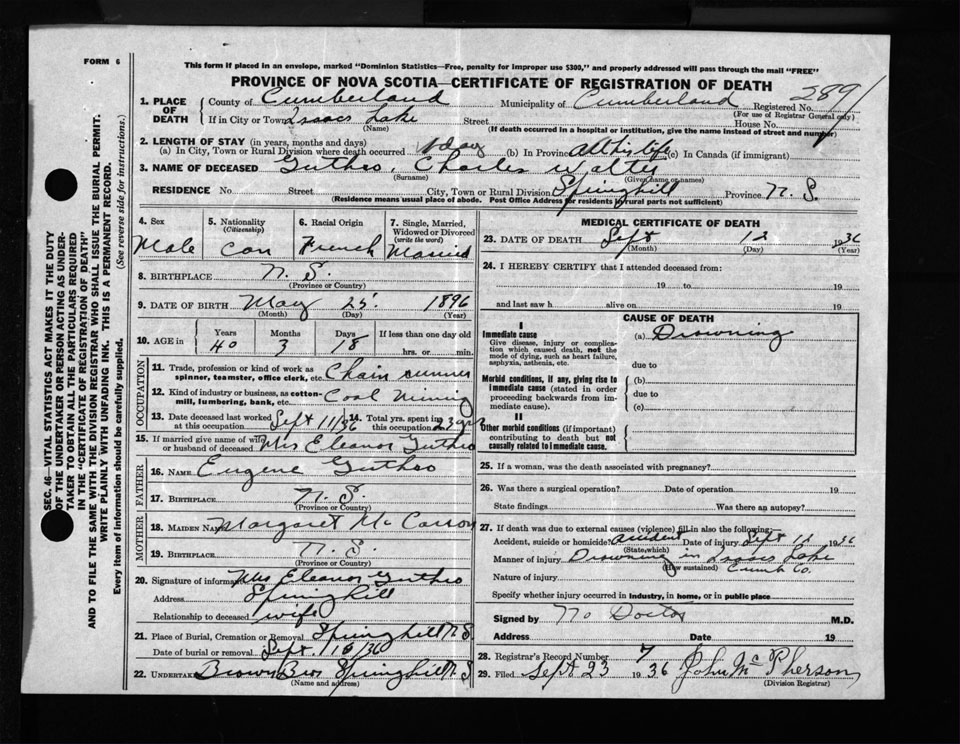 FORM 6
This form if placed in an envelope, marked "Dominion Statistics—Free, penalty for improper use $300," and properly addressed will pass through the mail "FREE"
PROVINCE OF NOVA SCOTIA—CERTIFICATE OF REGISTRATION OF DEATH
SEC. 46—VITAL STATISTICS ACT MAKES IT THE DUTY
OF THE UNDERTAKER OR PERSON ACTING AS UNDER-
TAKER TO OBTAIN ALL THE PARTICULARS REQUIRED
IN THE "CERTIFICATE OF REGISTRATION OF DEATH"
AND TO FILE THE SAME WITH THE DIVISION REGISTRAR WHO SHALL ISSUE THE BURIAL PERMIT.
WRITE PLAINLY WITH UNFADING INK. THIS IS A PERMANENT RECORD.
Every item of information should be carefully supplied. (See reverse side for instructions.)
1. PLACE OF DEATH
County of Cumberland Municipality of Cumberland Registered No. 2891
(For use of Registrar General only)
If in City or Town Isaacs Lake Street House No.
(Name) (If death occurred in a hospital or institution, give the name instead of street and number)
2. LENGTH OF STAY (in years, months and days)
(a) In City, Town or Rural Division where death occurred 1 day (b) In Province All his life (c) In Canada (if immigrant)
3. NAME OF DECEASED Guthro, Charles Walter
(Surname) (Given name or names)
RESIDENCE No. Street City, Town or Rural Division Springhill Province N. S.
(Residence means usual place of abode. Post Office Address for residents in rural parts not sufficient)
4. Sex Male
5. Nationality (Citizenship) Can
6. Racial Origin French
7. Single, Married, Widowed or Divorced (write the word) Married
8. BIRTHPLACE N. S.
(Province or Country)
9. DATE OF BIRTH May 25 1896
(Month) (Day) (Year)
10. AGE in Years 40 Months 3 Days 18 If less than one day old hrs. or min.
OCCUPATION
11. Trade, profession or kind of work as spinner, teamster, office clerk, etc. Chain runner
12. Kind of industry or business, as cotton-mill, lumbering, bank, etc. Coal Mining
13. Date deceased last worked at this occupation Sept 11/36 14. Total yrs. spent in this occupation 23 yrs
15. If married give name of wife or husband of deceased Mrs Eleanor Guthro
FATHER
16. NAME Eugene Guthro
17. BIRTHPLACE N. S.
(Province or Country)
MOTHER
18. MAIDEN NAME Margaret McCarron
19. BIRTHPLACE N. S.
(Province or Country)
20. Signature of informant Mrs Eleanor Guthro
Address Springhill
Relationship to deceased wife
21. Place of Burial, Cremation or Removal Springhill N S
Date of burial or removal Sept. 15/36
22. UNDERTAKER Brown Bros Springhill N. S
(Name and address)
MEDICAL CERTIFICATE OF DEATH
23. DATE OF DEATH Sept 12 1936
(Month) (Day) (Year)
24. I HEREBY CERTIFY that I attended deceased from:
19 to 19
and last saw h alive on 19
CAUSE OF DEATH
I
Immediate cause
Give disease, injury or complication which caused death, not the mode of dying, such as heart failure, asphyxia, asthenia, etc.
(a) Drowning
due to
Morbid conditions, if any, giving rise to immediate cause (stated in order proceeding backwards from immediate cause).
(b)
due to
(c)
II
Other morbid conditions (if important) contributing to death but not causally related to immediate cause.
25. If a woman, was the death associated with pregnancy?
26. Was there a surgical operation? Date of operation 19
State findings Was there an autopsy?
27. If death was due to external causes (violence) fill in also the following:—
Accident, suicide or homicide? accident Date of injury Sept 12 1936
(State which)
Manner of injury Drowning in Isaacs Lake
(How sustained) Cumb Co.
Nature of injury
Specify whether injury occurred in industry, in home, or in public place
Signed by No Doctor M.D.
Address Date 19
28. Registrar's Record Number 7
29. Filed Sept 23 1936 John McPherson
(Division Registrar)